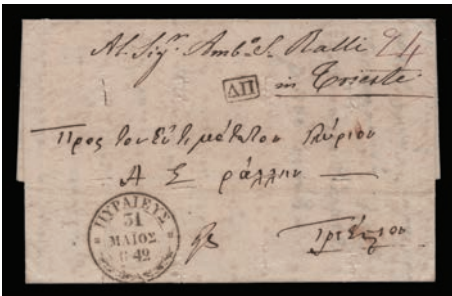 Al Sigr. Ambo. S. Ralli 24
ΔΠ
in Trieste
Προς τον Εὐτιμότατον Κύριον
Α Σ ράλλην
ΠΥΡΑΙΕΥΣ
31
ΜΑΪΟΣ
42
Τριέστιον